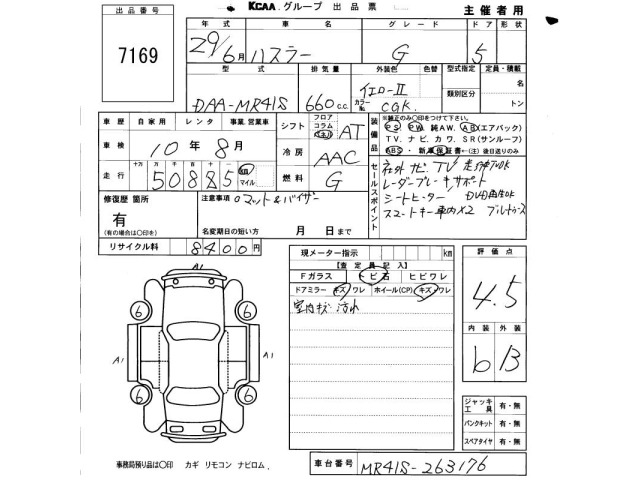 KCAA グループ 出品票 主催者用
出品番号
7169
年式 車名 グレード ドア 形状
29/6月 ハスラー G 5
型式 排気量 外装色 色替 型式指定 定員・積載
DAA-MR41S 660c.c. イエローII カラーNo. CGK 類別区分 名
トン
車歴 自家用 レンタ 事業.営業車
シフト フロア コラム インパネ AT
装備品 ※純正のみ〇印をつけて下さい。
PS PW 純AW. AB(エアバック)
TV. ナビ. カワ. SR(サンルーフ)
ABS・新車保証書←(注)後日送りのみ
車検 10年8月
冷房 AAC
走行 十万 万 千 百 十 一 50885 km マイル
燃料 G
セールスポイント
社外ナビ TV 走行中OK
レーダーブレーキサポート
シートヒーター DVD再生OK
スマートキー車内X2 ブルートゥース
修復歴 箇所
有
(有の場合は〇印)
注意事項 ロマット&バイザー
名変期日の短い方 月 日まで
リサイクル料 8400円
現メーター指示 km
【査定員記入】
Fガラス ヒビ石 ヒビワレ
ドアミラー キズ/ワレ ホイール(CP) キズ/ワレ
室内キズ 汚れ
評価点
4.5
内装 外装
b B
A1
6 6
A1 A1
6 6
ジャッキ工具 有・無
パンクキット 有・無
スペアタイヤ 有・無
事務局預り品は〇印 カギ リモコン ナビロム.
車台番号 MR41S-263176